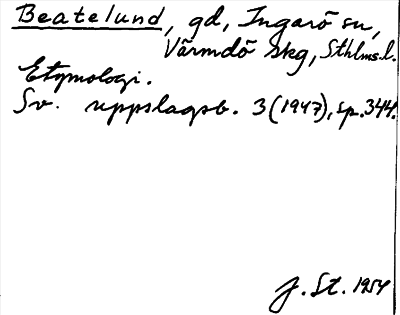 Beatelund, gd, Ingarö sn,
Värmdö skg, Sthlms l.
Etymologi.
Sv. uppslagsb. 3 (1947), sp. 344.
J. St. 1954